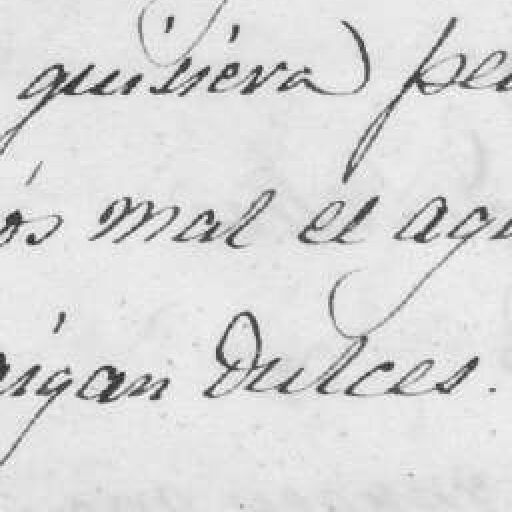 quisiera pe
ós mal el agu
aigan dulces.